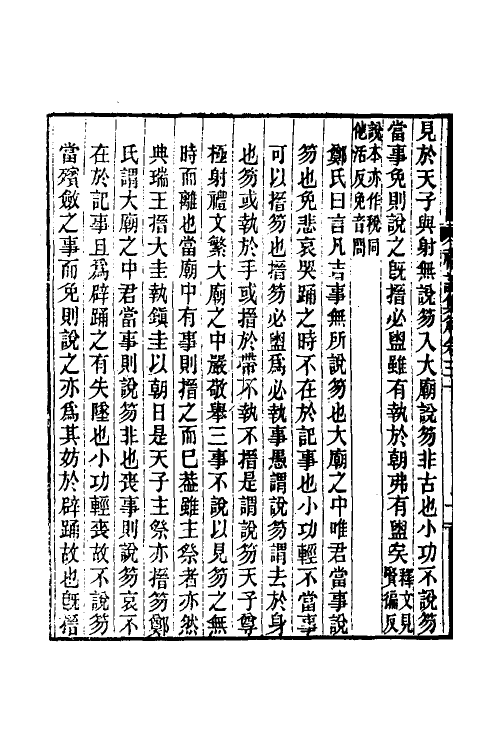 見於天子與射無說笏入大廟說笏非古也小功不說笏
當事免則說之旣搢必盥雖有執於朝弗有盥矣釋文見賢徧反
說本亦作稅同他活反免音問
鄭氏曰言凡吉事無所說笏也大廟之中唯君當事說
笏也免悲哀哭踊之時不在於記事也小功輕不當事
可以搢笏也搢笏必盥爲必執事愚謂說笏謂去於身
也笏或執於手或搢於帶不執不搢是謂說笏天子尊
極射禮文繁大廟之中嚴敬舉三事不說以見笏之無
時而離也當廟中有事則搢之而已蓋雖主祭者亦然
典瑞王搢大圭執鎮圭以朝日是天子主祭亦搢笏鄭
氏謂大廟之中君當事則說笏非也喪事則說笏哀不
在於記事且爲辟踊之有失墜也小功輕喪故不說笏
當殯斂之事而免則說之亦爲其妨於辟踊故也旣搢